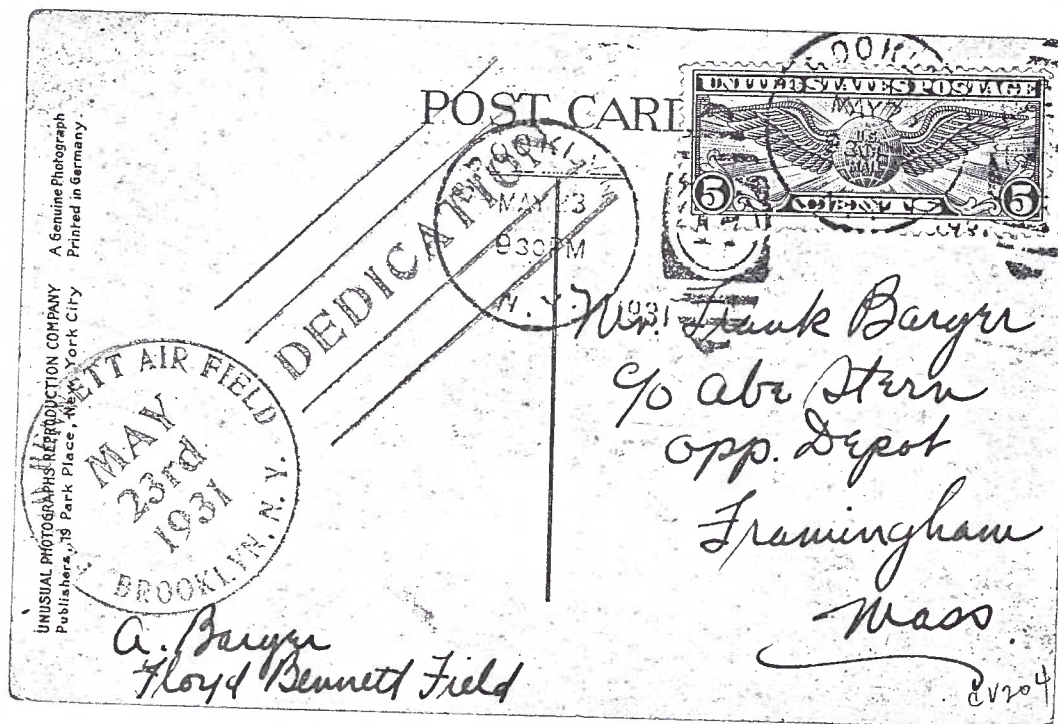 POST CARD
UNUSUAL PHOTOGRAPHS REPRODUCTION COMPANY
Publishers, 19 Park Place, New York City
A Genuine Photograph
Printed in Germany
UNITED STATES POSTAGE
U.S.
AIR
MAIL
5 5
BROOKLYN
MAY 23
930PM
N.Y. 1931
DEDICATION
BENNETT AIR FIELD
MAY
23rd
1931
BROOKLYN, N.Y.
Mr. Frank Barger
c/o Abe Stern
opp. Depot
Framingham
Mass.
A. Barger
Floyd Bennett Field
CV204